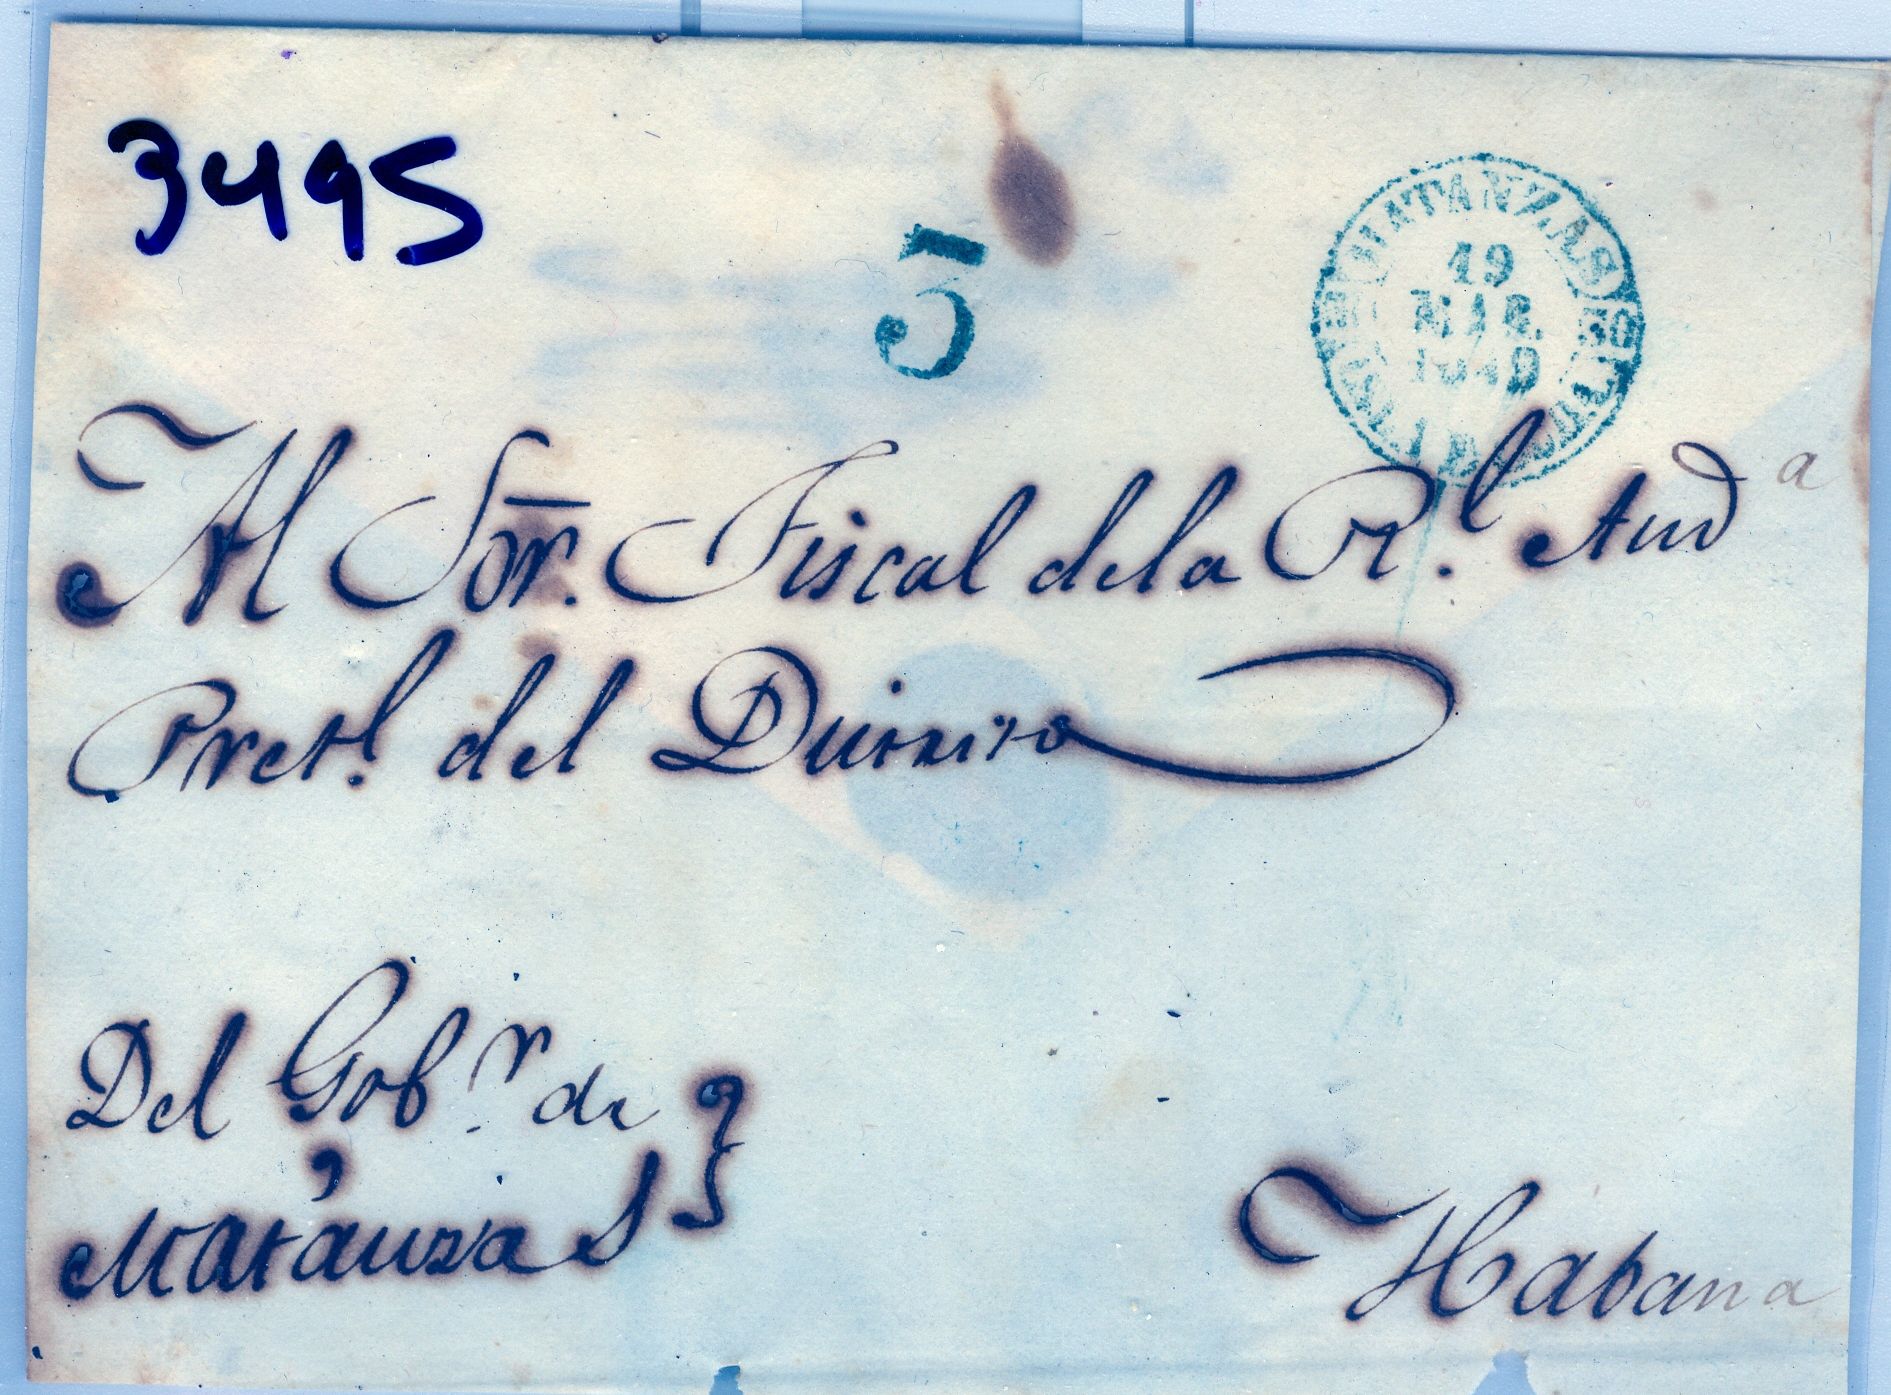 3495
5
MATANZAS
19
MAR.
1849
Al Sor. Fiscal de la Rl. Auda
Pretl. del
Del Gobr. de
Matanzas
Habana